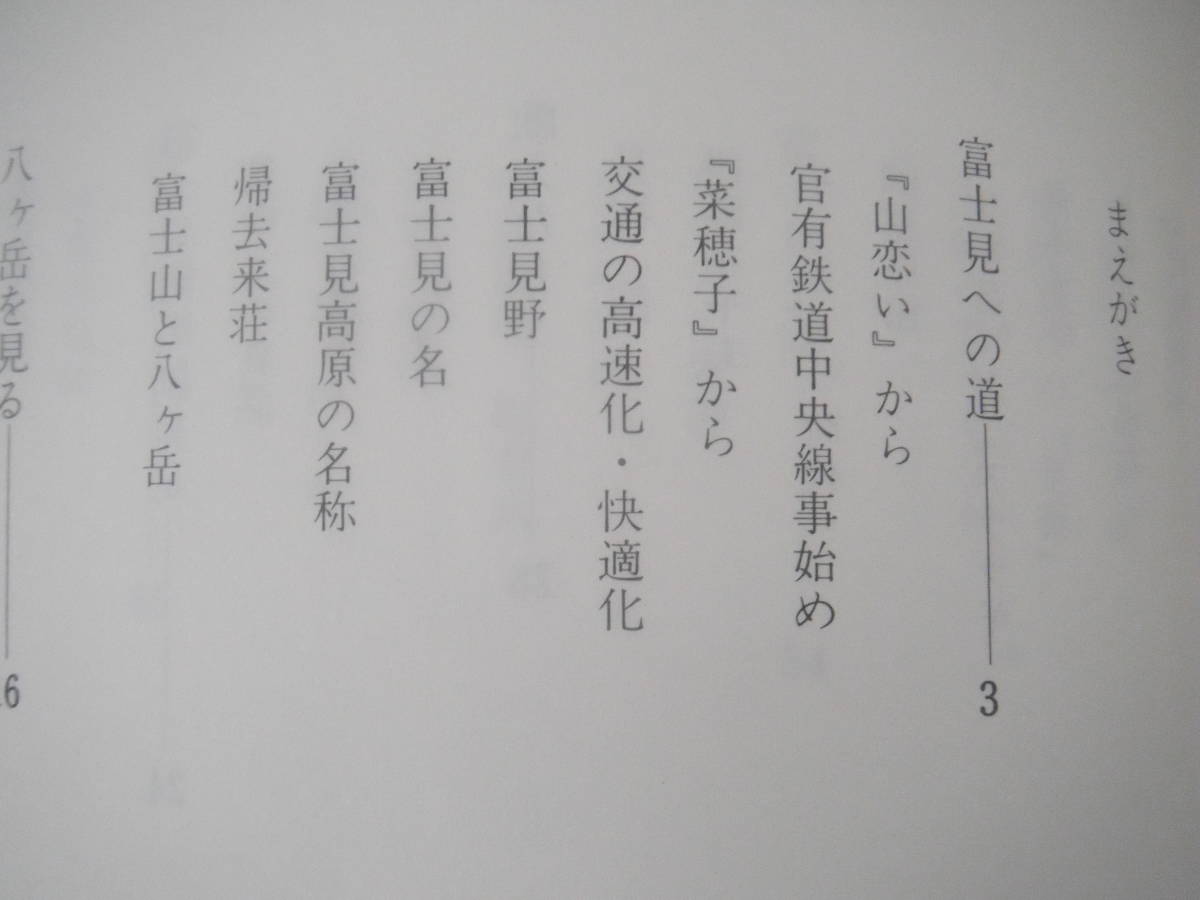 まえがき
富士見への道――3
『山恋い』から
官有鉄道中央線事始め
『菜穂子』から
交通の高速化・快適化
富士見野
富士見の名
富士見高原の名称
帰去来荘
富士山と八ヶ岳
八ヶ岳を見る――6